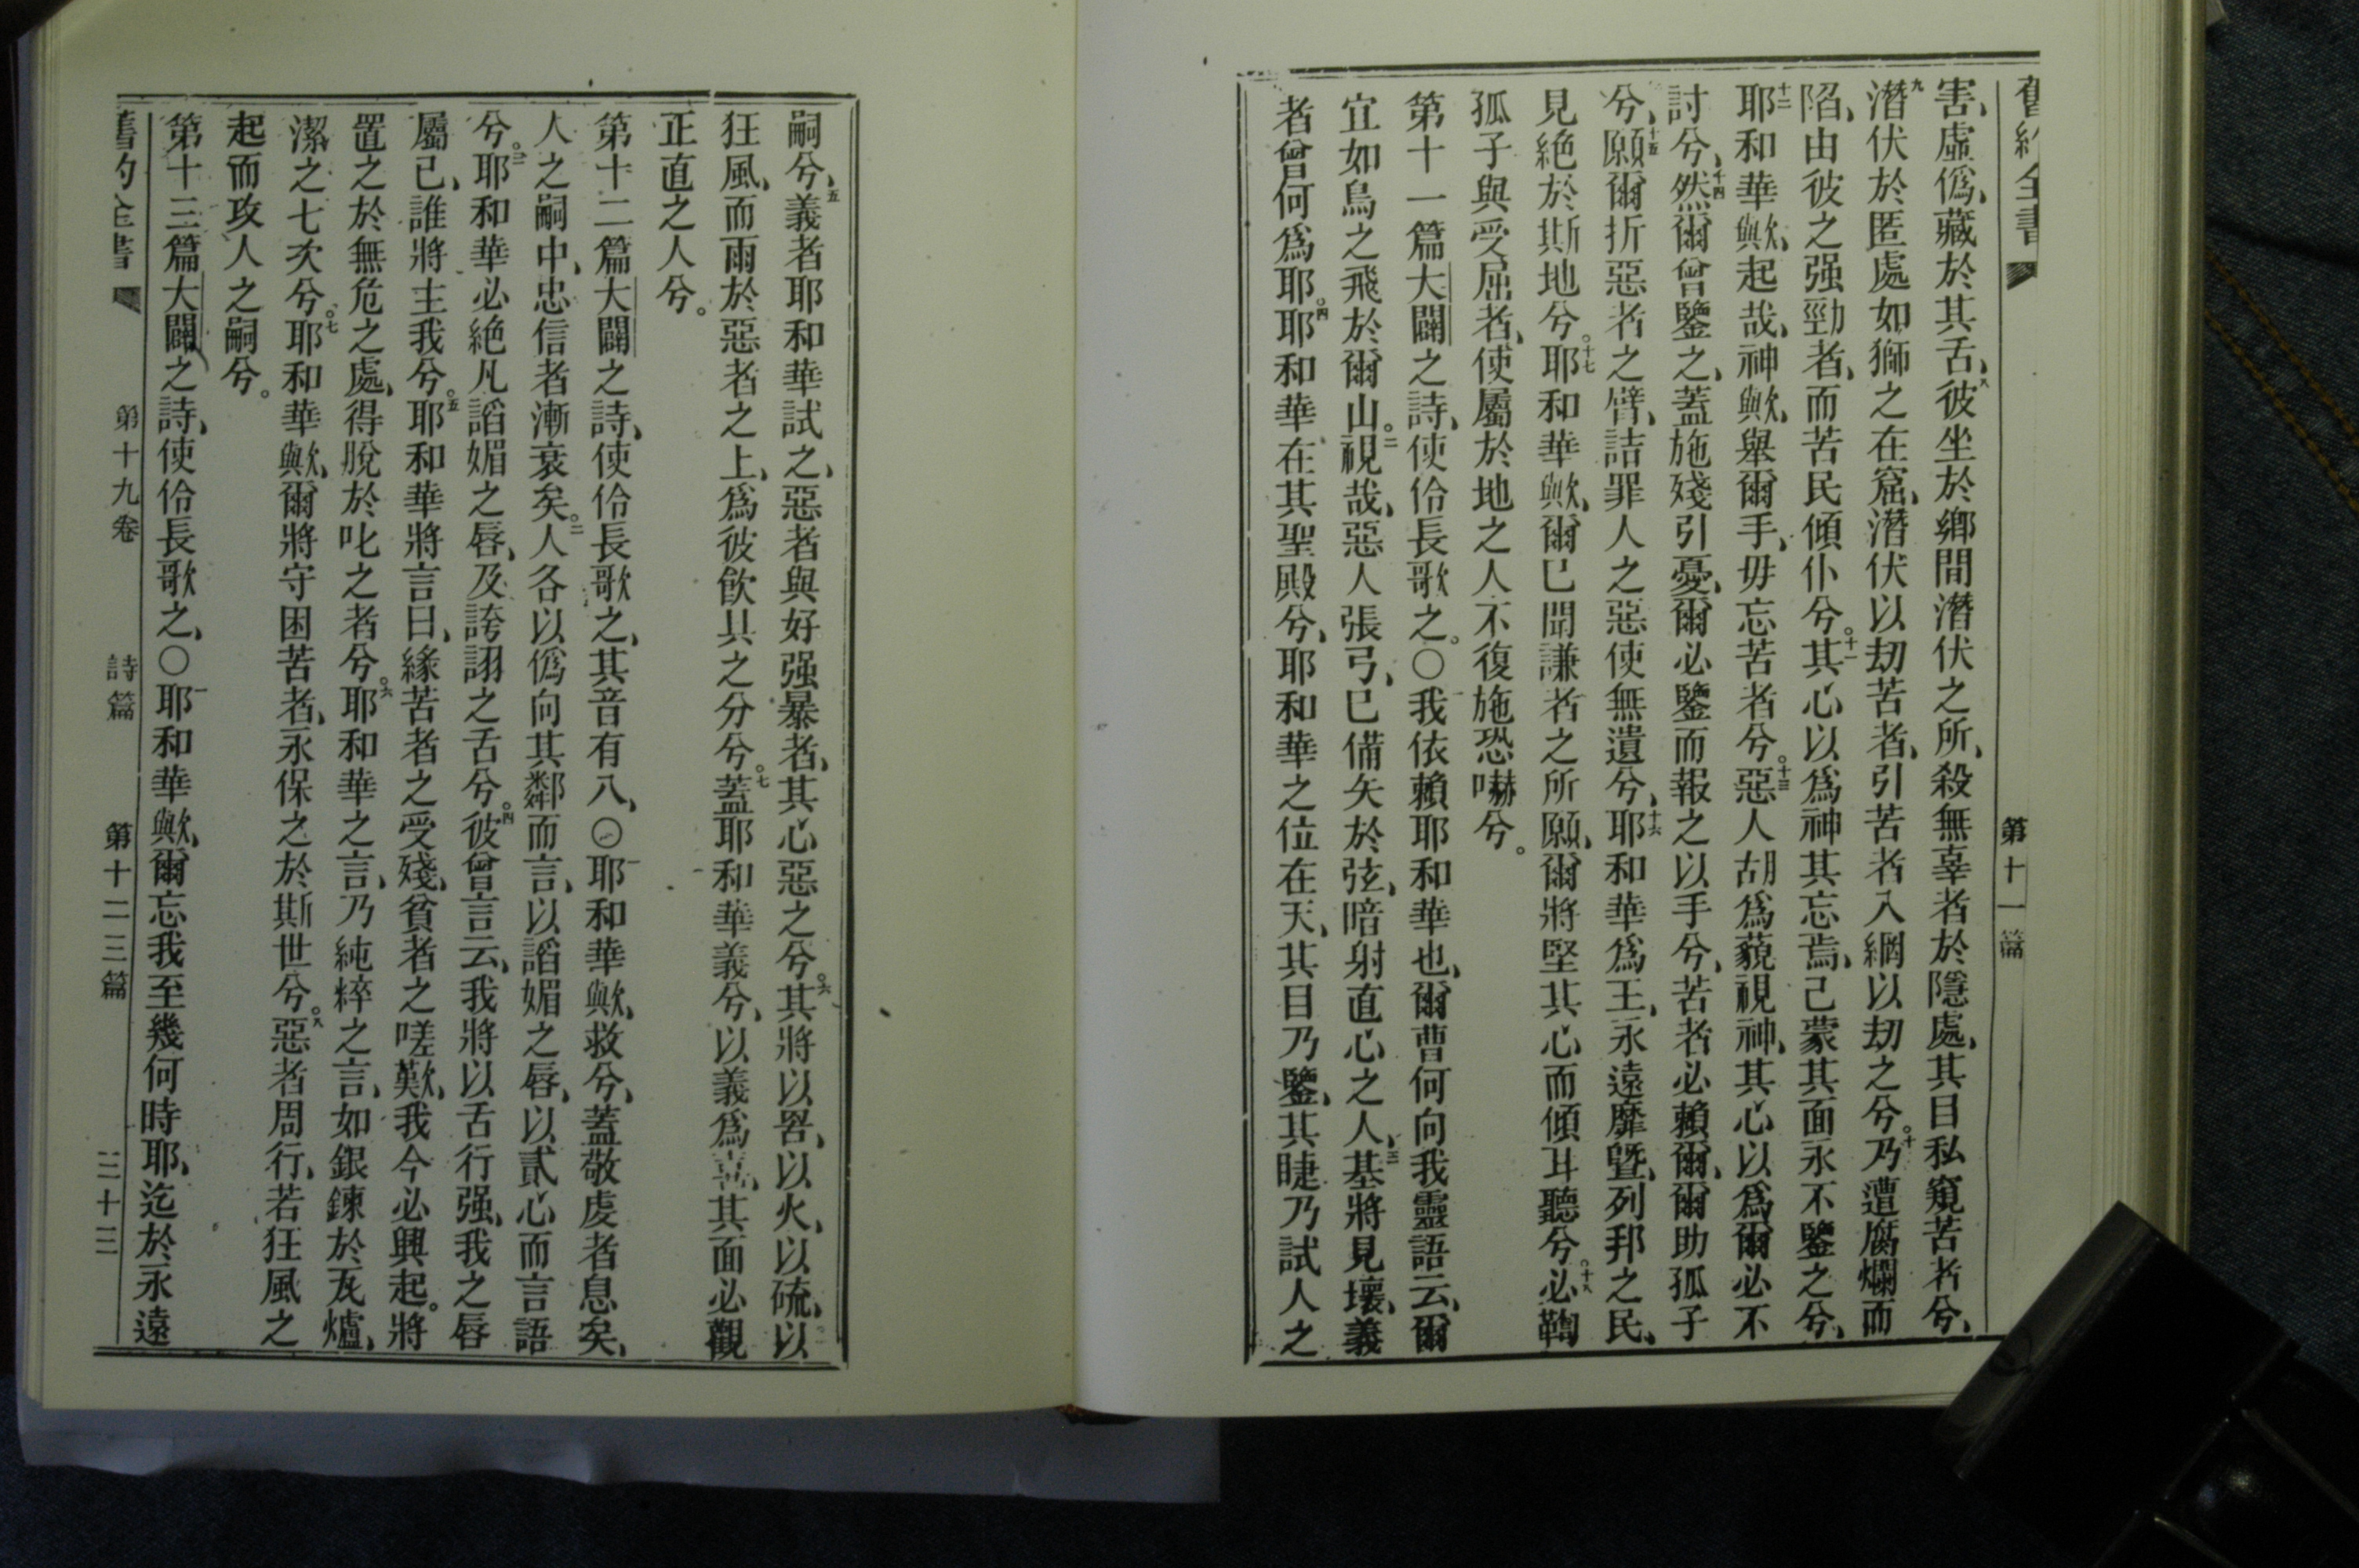 舊約全書
第十一篇
害、虛偽、藏於其舌、八彼坐於鄉間潛伏之所、殺無辜者於隱處、其目私窺苦者兮、
九潛伏於匿處如獅之在窟、潛伏以刧苦者、引苦者入網以刧之兮。十乃遭腐爛而
陷、由彼之强勁者、而苦民傾仆兮。十一其心以爲神其忘焉、己蒙其面永不鑒之兮、
十二耶和華歟、起哉、神歟、舉爾手、毋忘苦者兮。十三惡人胡爲藐視神、其心以爲爾必不
討兮、十四然爾曾鑒之、蓋施殘引憂、爾必鑒而報之以手兮、苦者必賴爾、爾助孤子
兮、十五願爾折惡者之臂、詰罪人之惡使無遺兮、十六耶和華爲王、永遠靡曁、列邦之民、
見絕於斯地兮。十七耶和華歟、爾已聞謙者之所願、爾將堅其心而傾耳聽兮。十八必鞫
孤子與受屈者、使屬於地之人不復施恐嚇兮。
第十一篇大闢之詩、使伶長歌之。〇一我依賴耶和華也、爾曹何向我靈語云、爾
宜如鳥之飛於爾山。二視哉、惡人張弓、已備矢於弦、暗射直心之人、三基將見壞、義
者曾何爲耶。四耶和華在其聖殿兮、耶和華之位在天、其目乃鑒、其睫乃試人之
嗣兮、五義者耶和華試之、惡者與好强暴者、其心惡之兮。六其將以罟、以火、以硫、以
狂風、而雨於惡者之上、爲彼飮具之分兮。七蓋耶和華義兮、以義爲喜、其面必觀
正直之人兮。
第十二篇大闢之詩、使伶長歌之、其音有八、〇一耶和華歟、救兮、蓋敬虔者息矣、
人之嗣中、忠信者漸衰矣。二人各以僞向其鄰而言、以謟媚之唇、以貳心而言語
兮。三耶和華必絕凡謟媚之唇、及誇詡之舌兮。四彼曾言云、我將以舌行强、我之唇
屬己、誰將主我兮。五耶和華將言曰、緣苦者之受殘、貧者之嗟歎、我今必興起。將
置之於無危之處、得脫於叱之者兮。六耶和華之言、乃純粹之言、如銀鍊於瓦爐、
潔之七次兮。七耶和華歟、爾將守困苦者、永保之於斯世兮。八惡者周行、若狂風之
起而攻人之嗣兮。
第十三篇大闢之詩、使伶長歌之、〇一耶和華歟、爾忘我至幾何時耶、迄於永遠
舊約全書 第十九卷 詩篇 第十二三篇 三十三